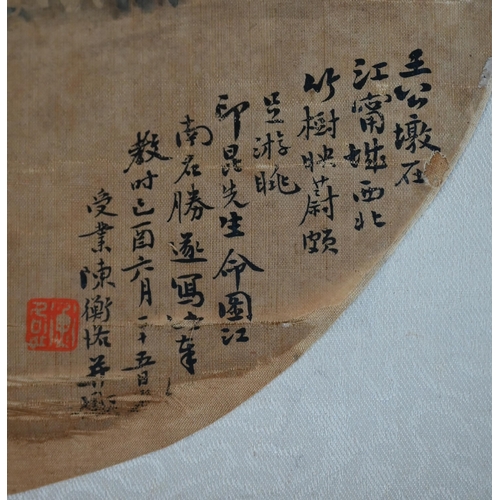 王公墩在
江甯城西北
竹樹映蔚頗
足游眺
印昆先生命圖江
南名勝遂寫此奉
教时己酉六月二十五日
受業陳衡恪并題